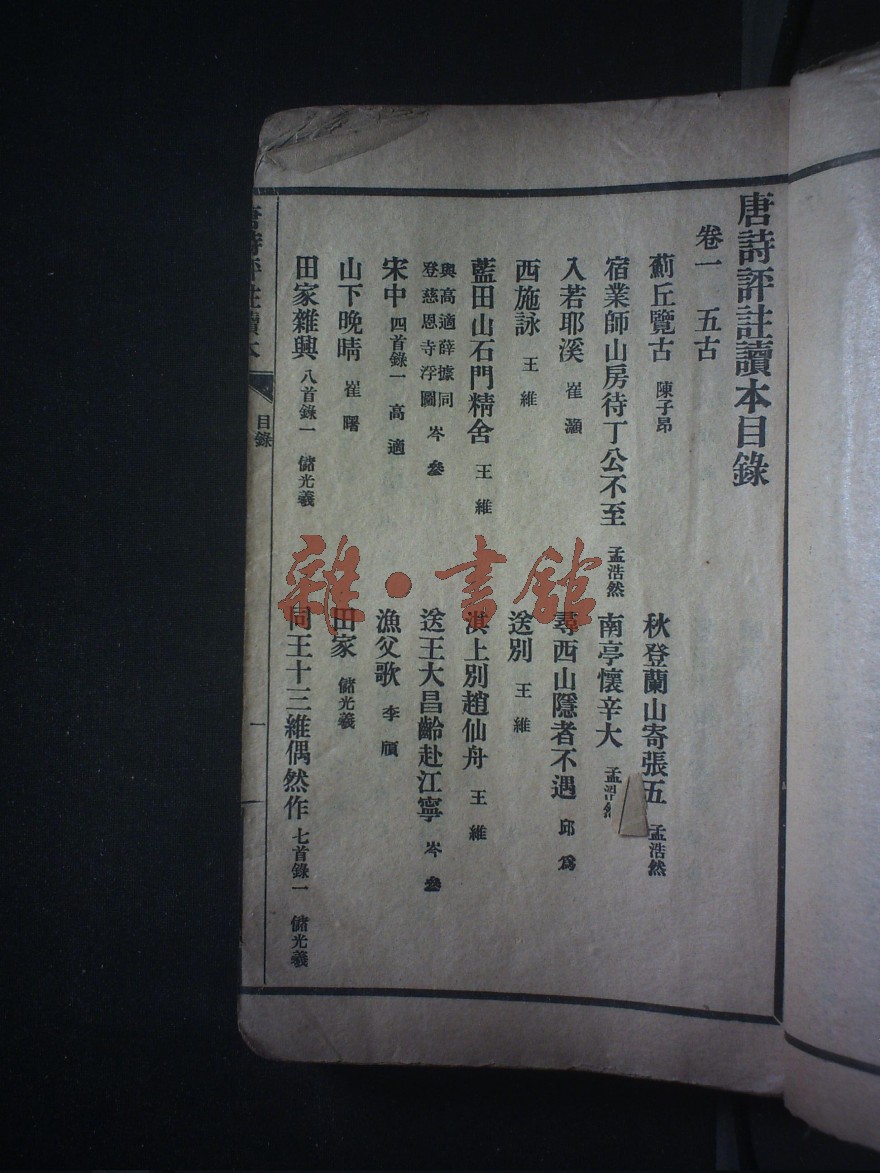 唐詩評註讀本目錄
卷一　五古
薊丘覽古　陳子昂　秋登蘭山寄張五　孟浩然
宿業師山房待丁公不至　孟浩然　南亭懷辛大　孟浩然
入若耶溪　崔灝　尋西山隱者不遇　邱為
西施詠　王維　送別　王維
藍田山石門精舍　王維　淇上別趙仙舟　王維
與高適薛據同登慈恩寺浮圖　岑參　送王大昌齡赴江寧　岑參
宋中　四首錄一　高適　漁父歌　李頎
山下晚晴　崔曙　田家　儲光羲
田家雜興　八首錄一　儲光羲　同王十三維偶然作　七首錄一　儲光羲
唐詩評註讀本　目錄　一
雜·書館